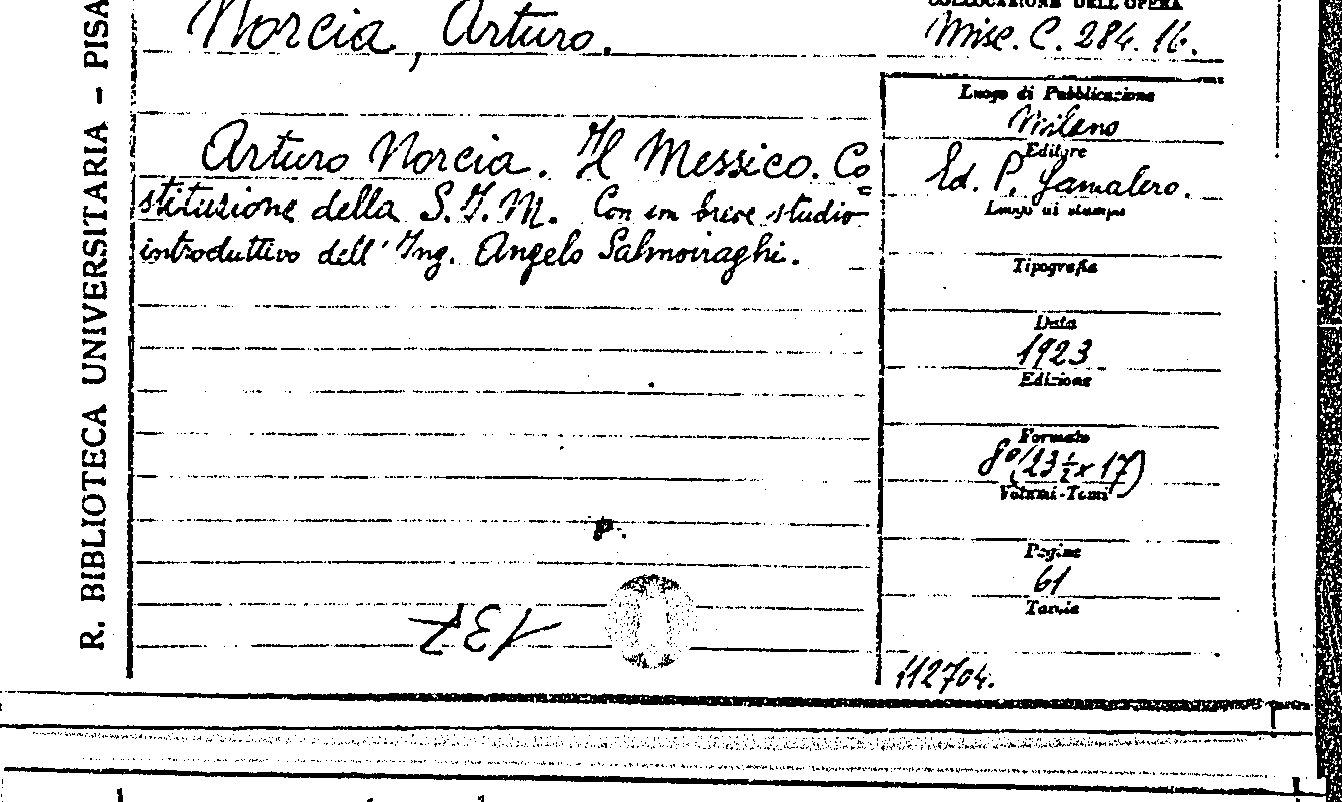 R. BIBLIOTECA UNIVERSITARIA – PISA
Norcia, Arturo.
COLLOCAZIONE DELL'OPERA
Misc. C. 284. 16.
Arturo Norcia. Il Messico. Co
stituzione della S.I.M. Con un breve studio
introduttivo dell'Ing. Angelo Salmoiraghi.
137
Luogo di Pubblicazione
Milano
Editore
Ed. P. Gamalero.
Luogo di stampa
Tipografia
Data
1923
Edizione
Formato
8º(23½x17)
Volumi-Tomi
Pagine
61
Tavole
112704.